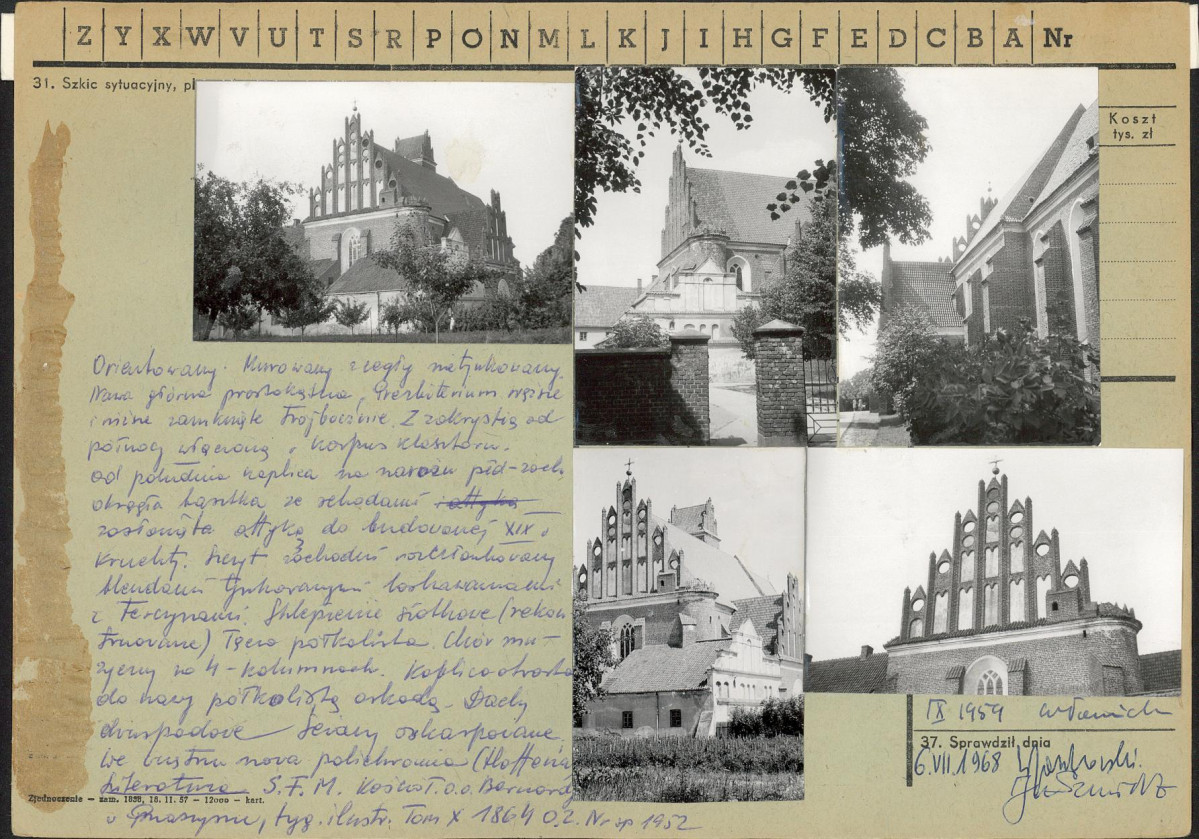 Z Y X W V U T S R P O N M L K J I H G F E D C B A Nr
31. Szkic sytuacyjny, pl
Koszt
tys. zł
Orientowany. Murowany z cegły nietynkowany.
Nawa główna prostokątna, Prezbiterium węższe
i niższe zamknięte trójbocznie. Z zakrystią od
północy włączoną w korpus klasztoru.
od południa kaplica na narożu płd-zach.
okrągła basztka ze schodami attyka
zasłonięta attyką do budowanej XIX w
kruchty. Szczyt zachodni rozczłonkowany
blendami tynkowanymi
z sterczynami. Sklepienie siatkowe (rekon
struowane) Tęcza półkolista. Chór mu-
zyczny na 4-kolumnach. Kaplica otwarta
do nawy półkolistą arkadą. Dachy
dwuspadowe Ściany oskarpowane,
We wnętrzu nowa polichromia (Hoffman
Literatura S.F.M. Kościół O.O. Bernard
w Przasnyszu, tyg. ilustr. Tom X 1864 O.Z. Nr sp 1952
Zjednoczenie — zam. 1838, 18. 11. 57 — 12000 — kart.
IX 1959
37. Sprawdził, dnia
6.VII.1968